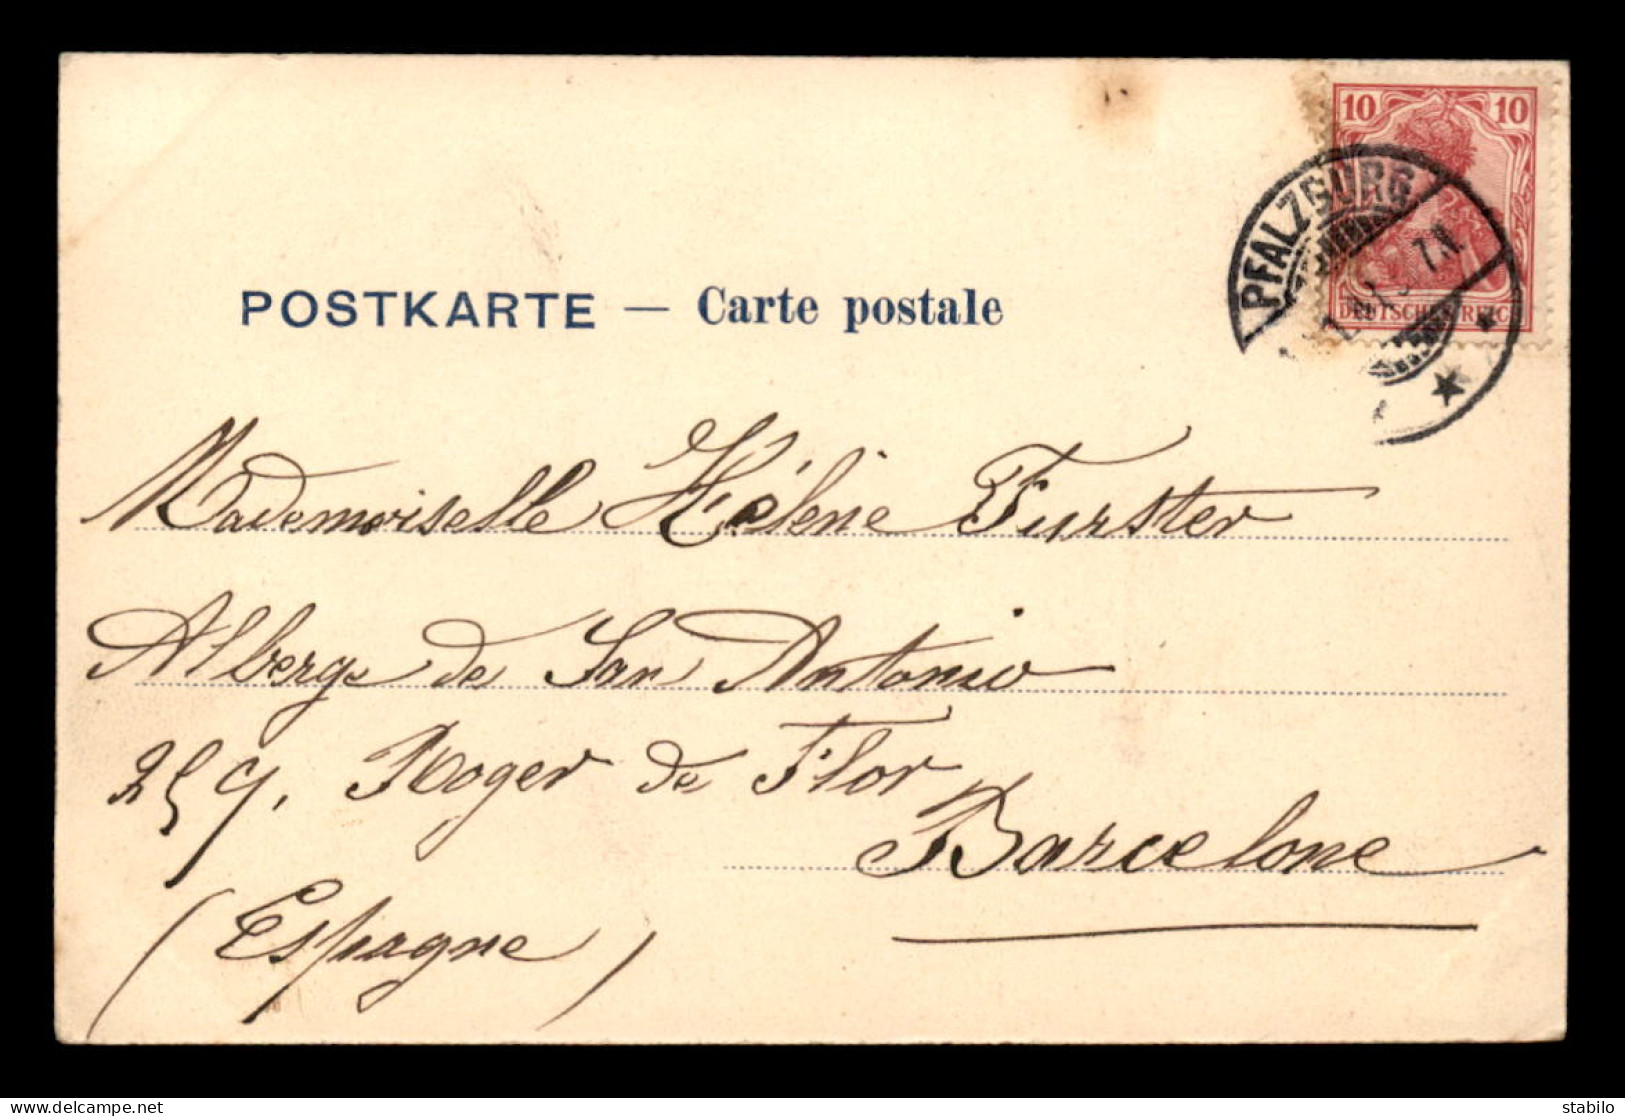 10 10
PFALZBURG
7.N.
DEUTSCHES REICH
POSTKARTE — Carte postale
Mademoiselle Hélène Furster
Alberge de San Antonio
259, Roger de Flor
Barcelone
(Espagne)
delcampe.net
stabilo